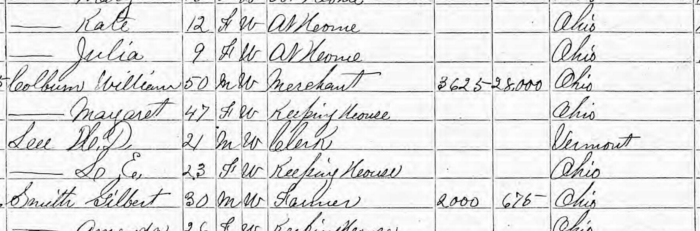 — Kate 12 F W At Home Ohio
— Julia 9 F W At Home Ohio
Colburn William 50 M W Merchant 3625 28,000 Ohio
— Margaret 47 F W Keeping House Ohio
Lee 21 M W Clerk Vermont
— L. E. 23 F W Keeping House Ohio
Smith Gilbert 30 M W Farmer 2000 675 Ohio